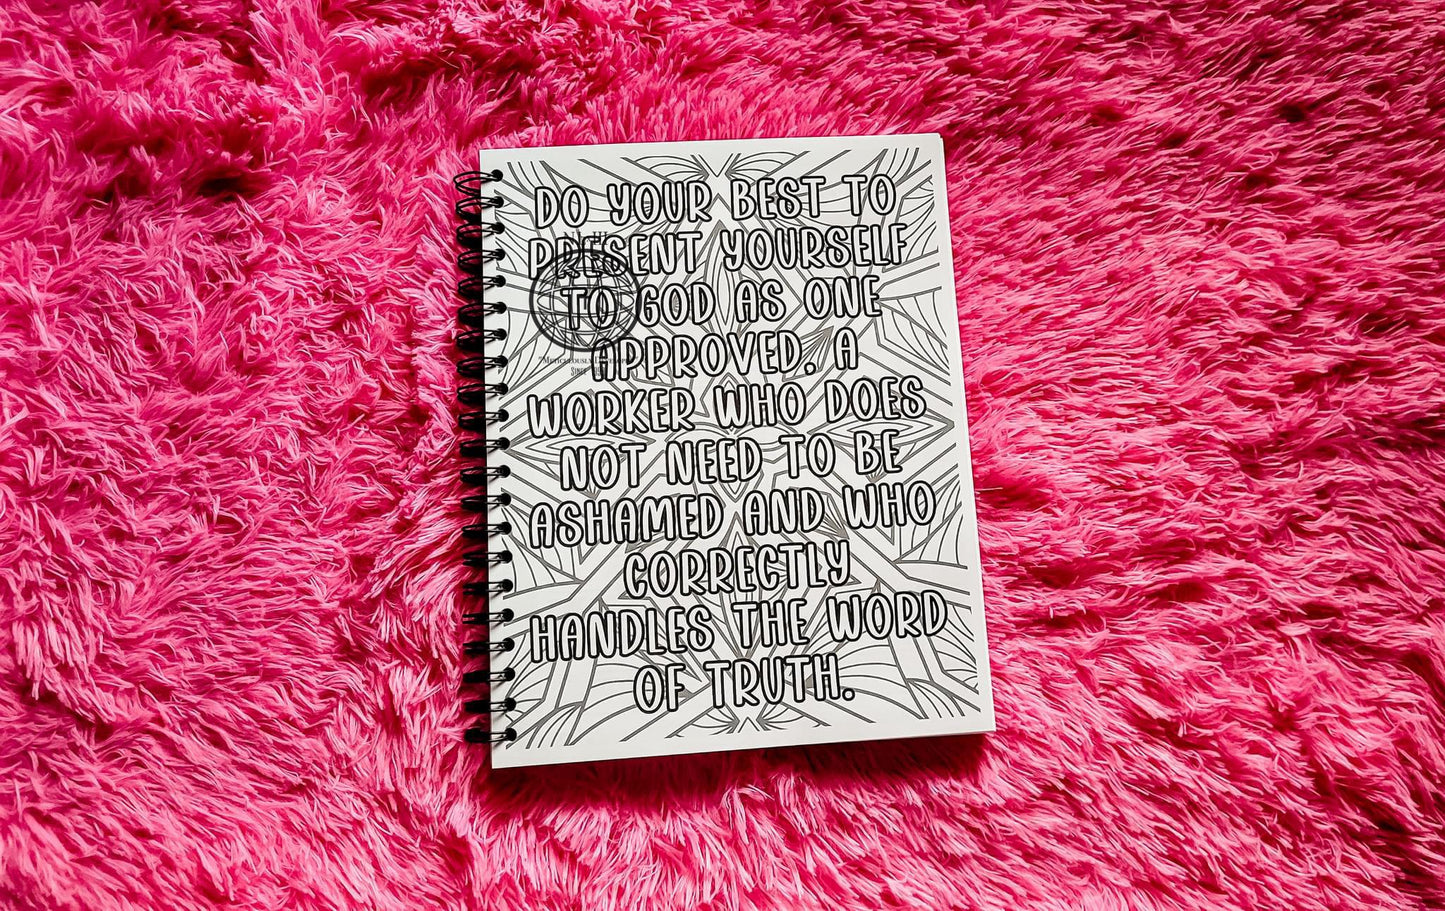 DO YOUR BEST TO
PRESENT YOURSELF
TO GOD AS ONE
APPROVED. A
WORKER WHO DOES
NOT NEED TO BE
ASHAMED AND WHO
CORRECTLY
HANDLES THE WORD
OF TRUTH.
"METICULOUSLY
SINCE